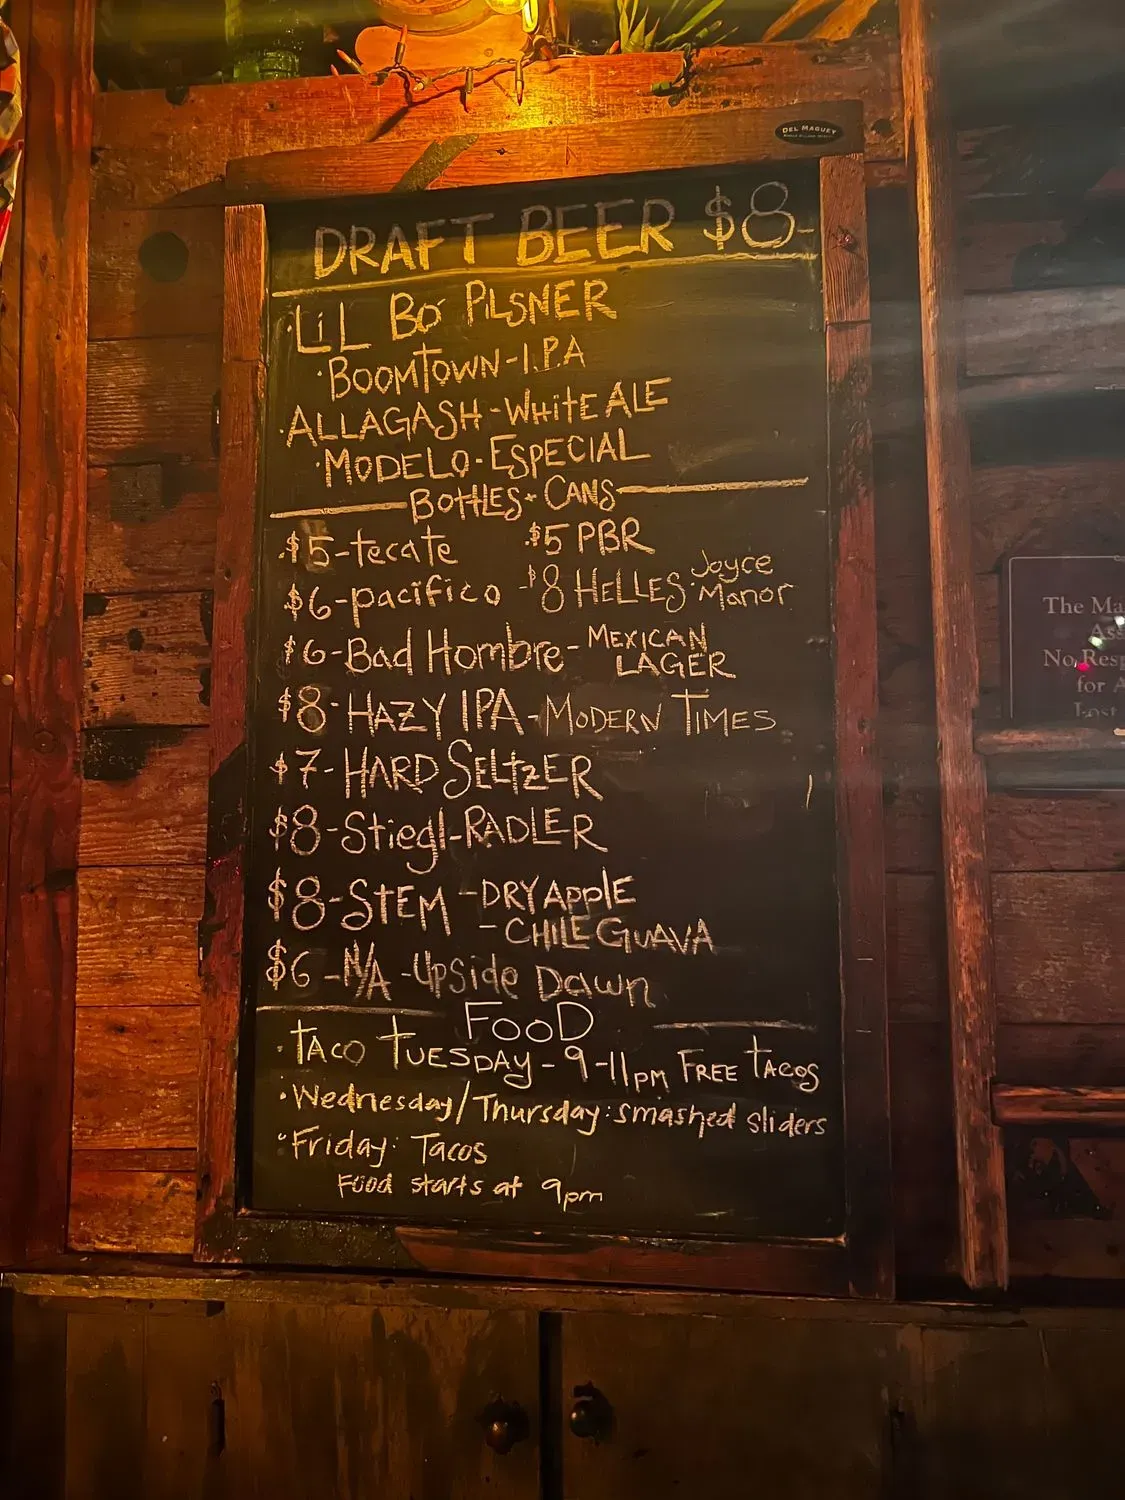 DEL MAGUEY
DRAFT BEER $8-
·LiL Bo' PILSNER
·BOOMTOWN-I.P.A
·ALLAGASH-WHitE ALE
·MODELO-ESPECIAL
BOttLES+CANS
·$5-tecate ·$5 PBR
$6-pacifico -$8 HELLES·Joyce Manor
$6-Bad Hombre-MEXICAN LAGER
$8-HAZY IPA-MODERN TIMES
$7-HARD SELtzER
$8-Stiegl-RADLER
$8-STEM -DRY APPlE
-CHILE GUAVA
$6-N/A-Upside Dawn
FOOD
·TACO TUESDAY-9-11pm FREE tacos
·Wednesday/Thursday:smashed sliders
·Friday: Tacos
Food starts at 9pm
The Ma
Ass
No Resp
for A
Lost